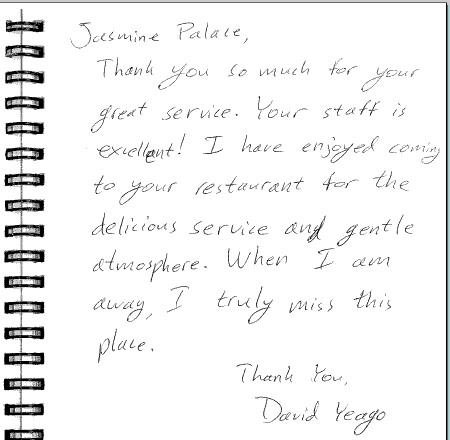 Jasmine Palace,
Thank you so much for your
great service. Your staff is
excellent! I have enjoyed coming
to your restaurant for the
delicious service and gentle
atmosphere. When I am
away, I truly miss this
place.
Thank You,
David Yeago